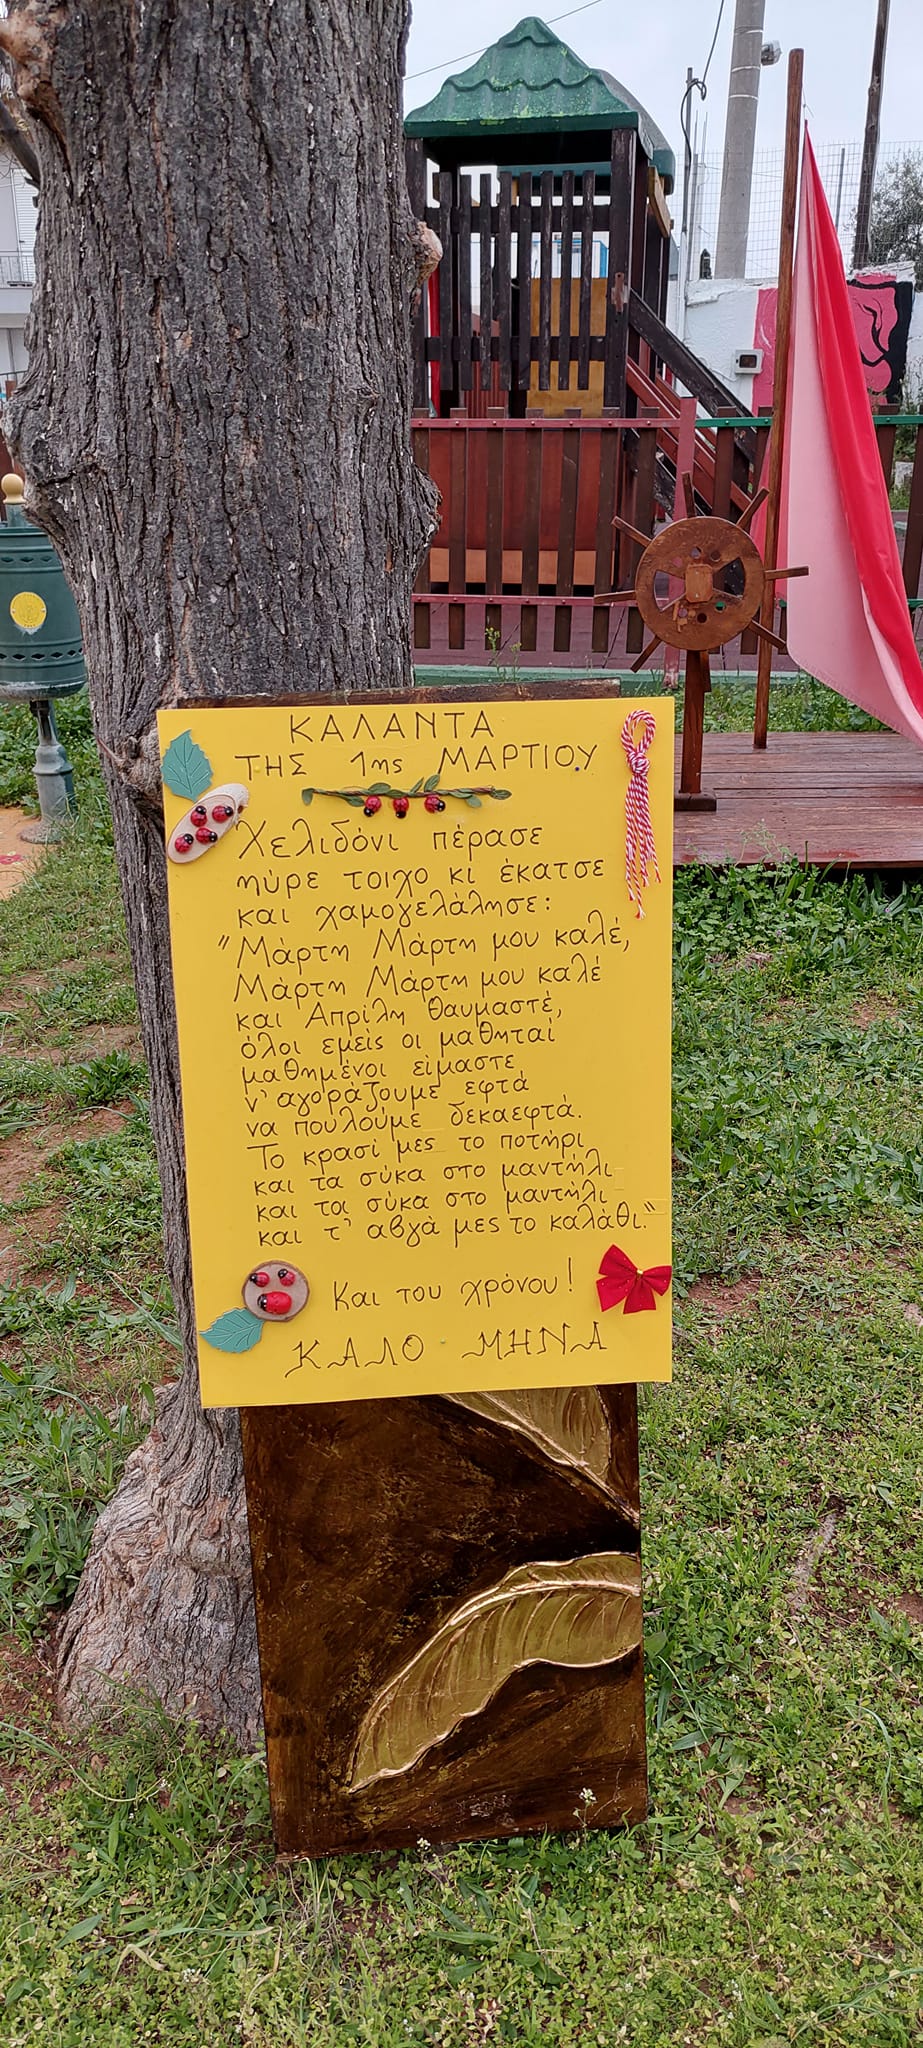 ΚΑΛΑΝΤΑ
ΤΗΣ 1ης ΜΑΡΤΙΟΥ
Χελιδόνι πέρασε
ηύρε τοιχο κι έκατσε
και χαμογελάλησε:
"Μάρτη Μάρτη μου καλέ,
Μάρτη Μάρτη μου καλέ
και Απρίλη θαυμαστέ,
όλοι εμείς οι μαθηταί
μαθημένοι είμαστε
ν' αγοράζουμε εφτά
να πουλούμε δεκαεφτά.
Το κρασί μες το ποτήρι
και τα σύκα στο μαντήλι
και τα σύκα στο μαντήλι
και τ' αβγά μες το καλάθι."
Και του χρόνου!
ΚΑΛΟ ΜΗΝΑ